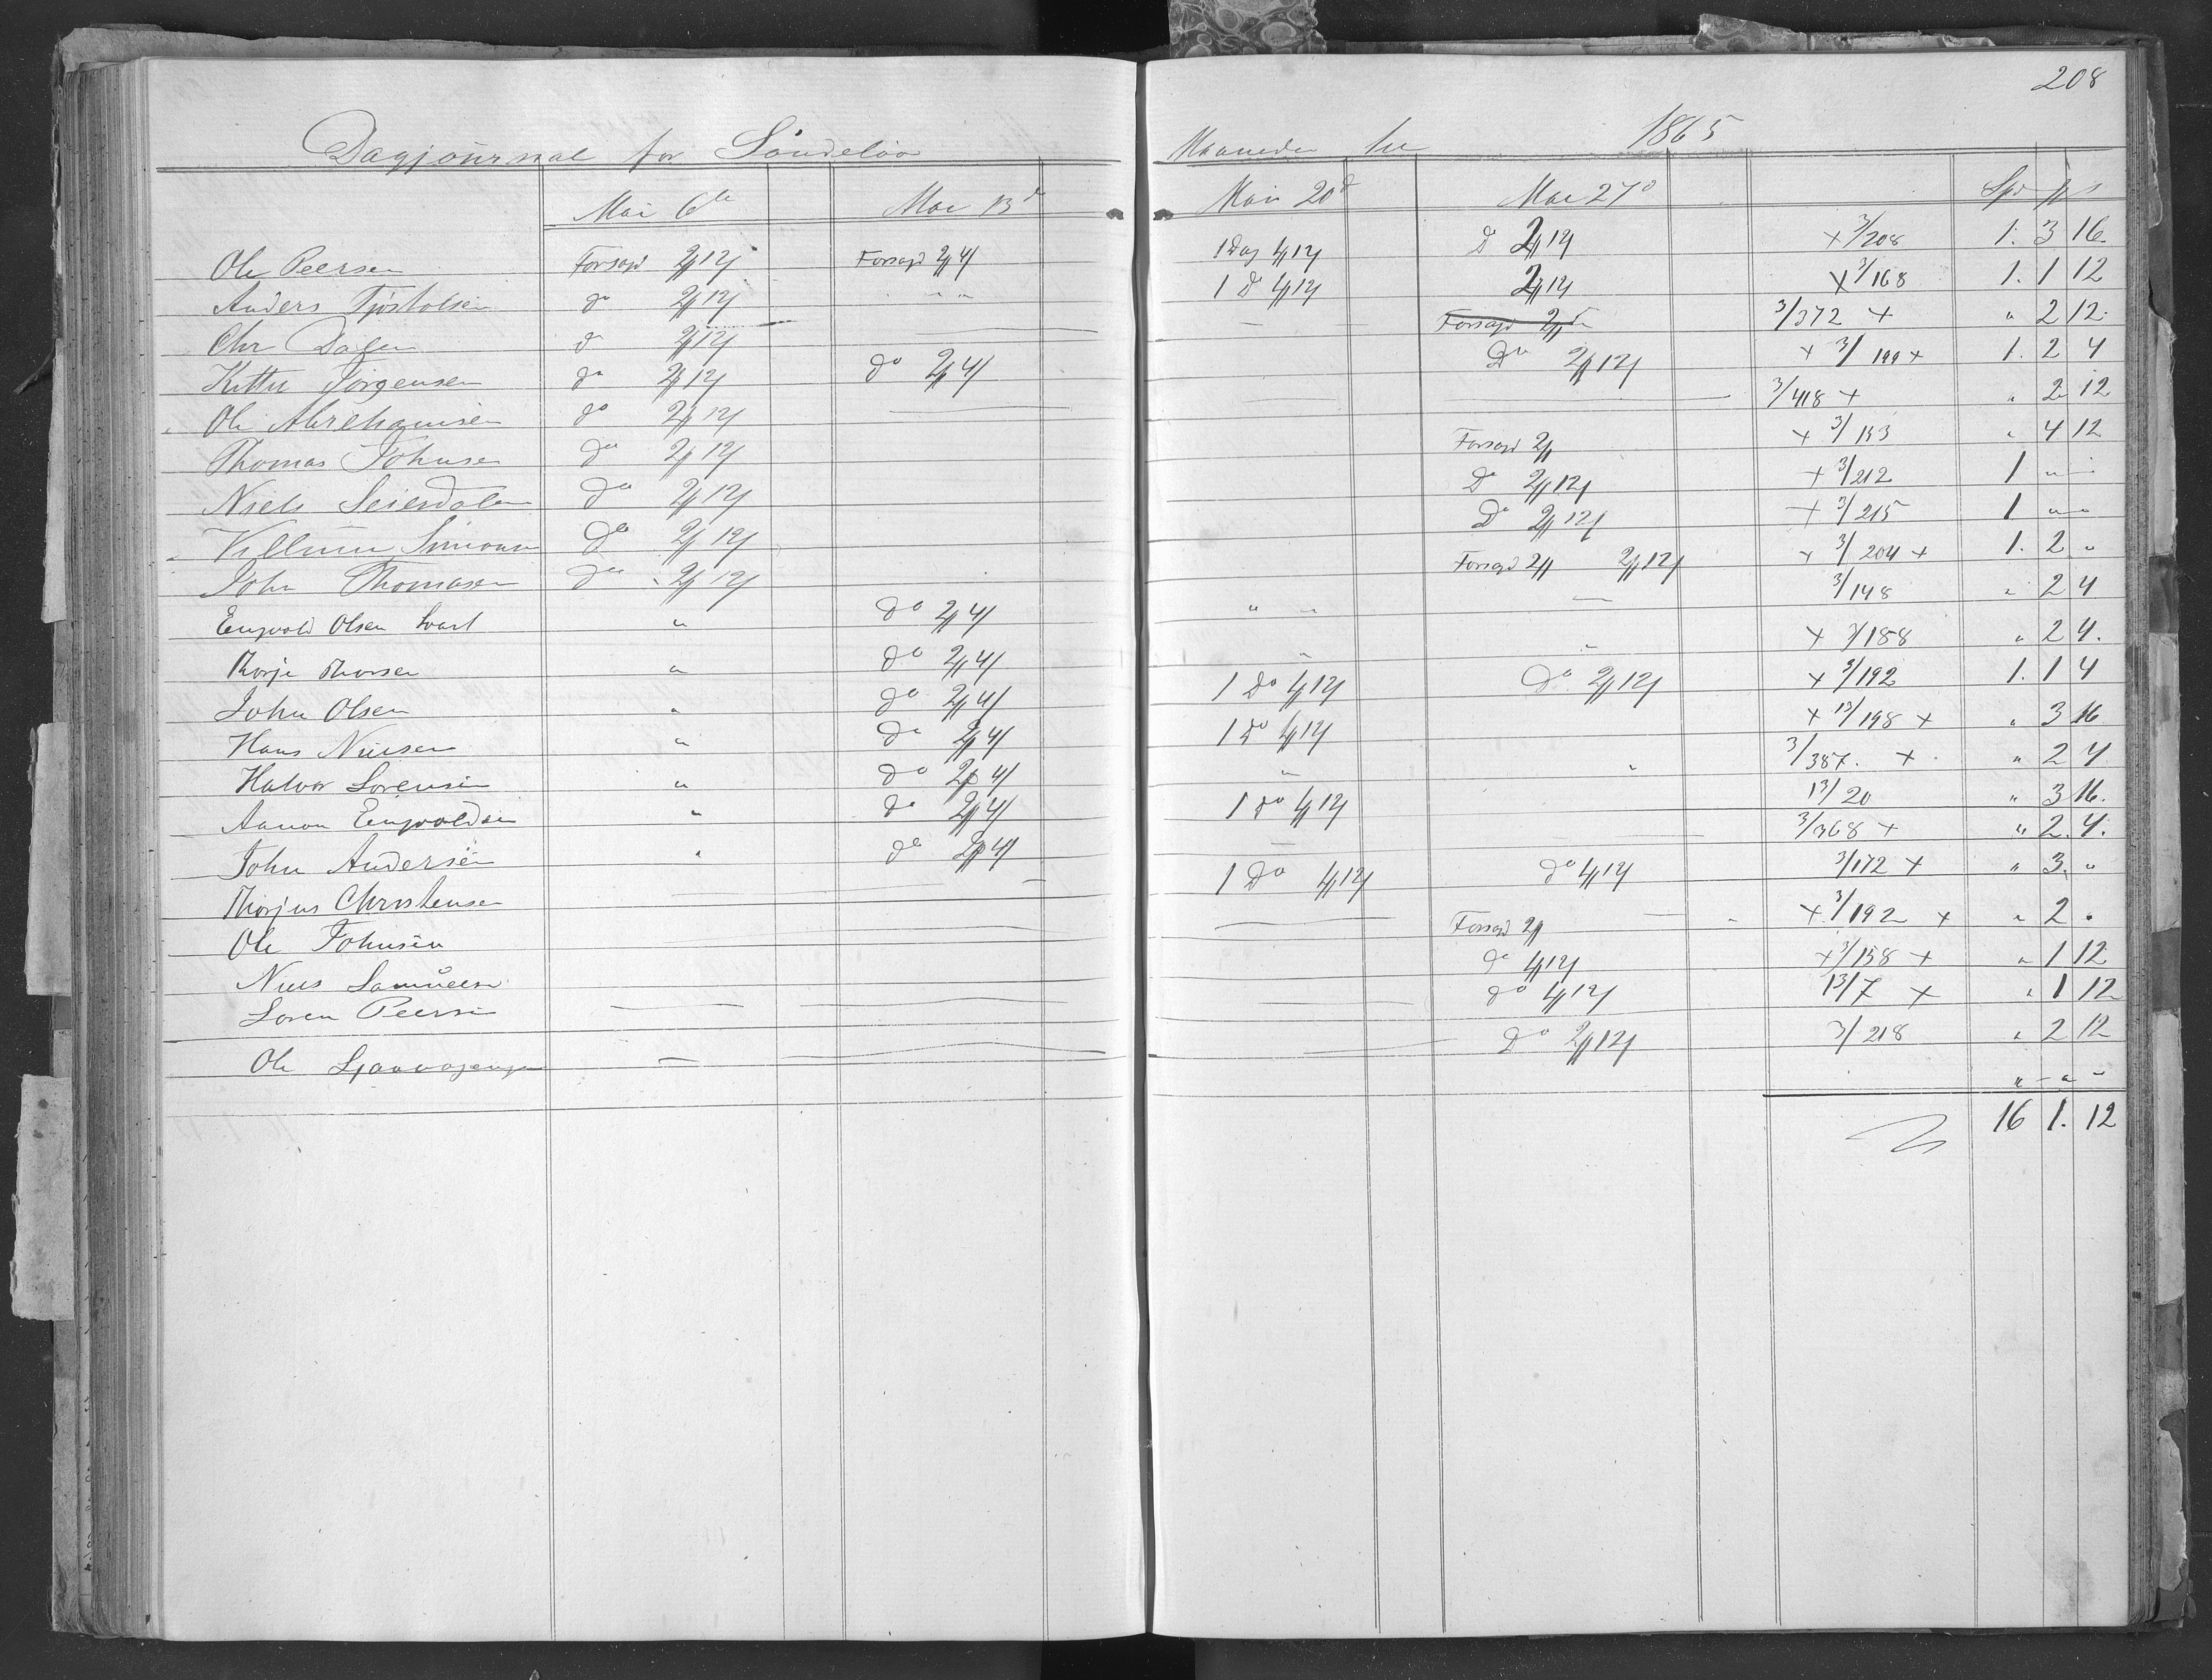 208
Dagjournal for Söndelöv Maaneden 1865
Mai 6te Mai 13d Mai 20d Mai 27d Spd
Ole Peersen Forsagd 2 12 Forsagd 2 4 1 Dag 4 12 D 2 12 x 3/208 1. 3 16.
Anders Tjöstolsen do 2 12 " " 1 D 4 12 2 12 x 3/168 1. 1 12
Chr Dalen d 2 12 — 3/372 x " 2 12.
Kittel Jörgensen do 2 12 do 2 4 Do 2 12 x 3/199 x 1. 2 4
Ole Abrehamsen do 2 12 — 3/418 x " 2 12
Thomas Johnsen do 2 12 Forsagd 2 x 3/153 " 4 12
Niels Seiersdalen do 2 12 D 2 12 x 3/212 1 " "
Villum Simonsen do 2 12 Do 2 12 x 3/215 1 " "
John Thomasen do 2 12 Forsagd 2 2 12 x 3/204 x 1. 2 "
Engvold Olsen Svart " do 2 4 " " — 3/148 " 2 4
Thorje Thorsen " do 2 4 " " x 3/188 " 2 4.
John Olsen " do 2 4 1 Do 4 12 Do 2 12 x 3/192 1. 1 4
Hans Nielsen " do 2 4 1 Do 4 12 x 13/198 x " 3 16
Halvor Sorensen " do 2 4 " " 3/387. x " 2 4
Aanon Engvoldsen " do 2 4 1 do 4 12 13/20 " 3 16.
John Andersen " do 2 4 — 3/368 x " 2. 4.
Thorjus Christensen — 1 Do 4 12 do 4 12 3/172 x " 3. "
Ole Johnsen Forsagd 2 x 3/192 x " 2 "
Niels Samuelsen do 4 12 x 3/158 x " 1 12
Soren Peersen — do 4 12 13/7 x " 1 12
Ole — Do 2 12 3/218 " 2 12
" " "
16 1. 12